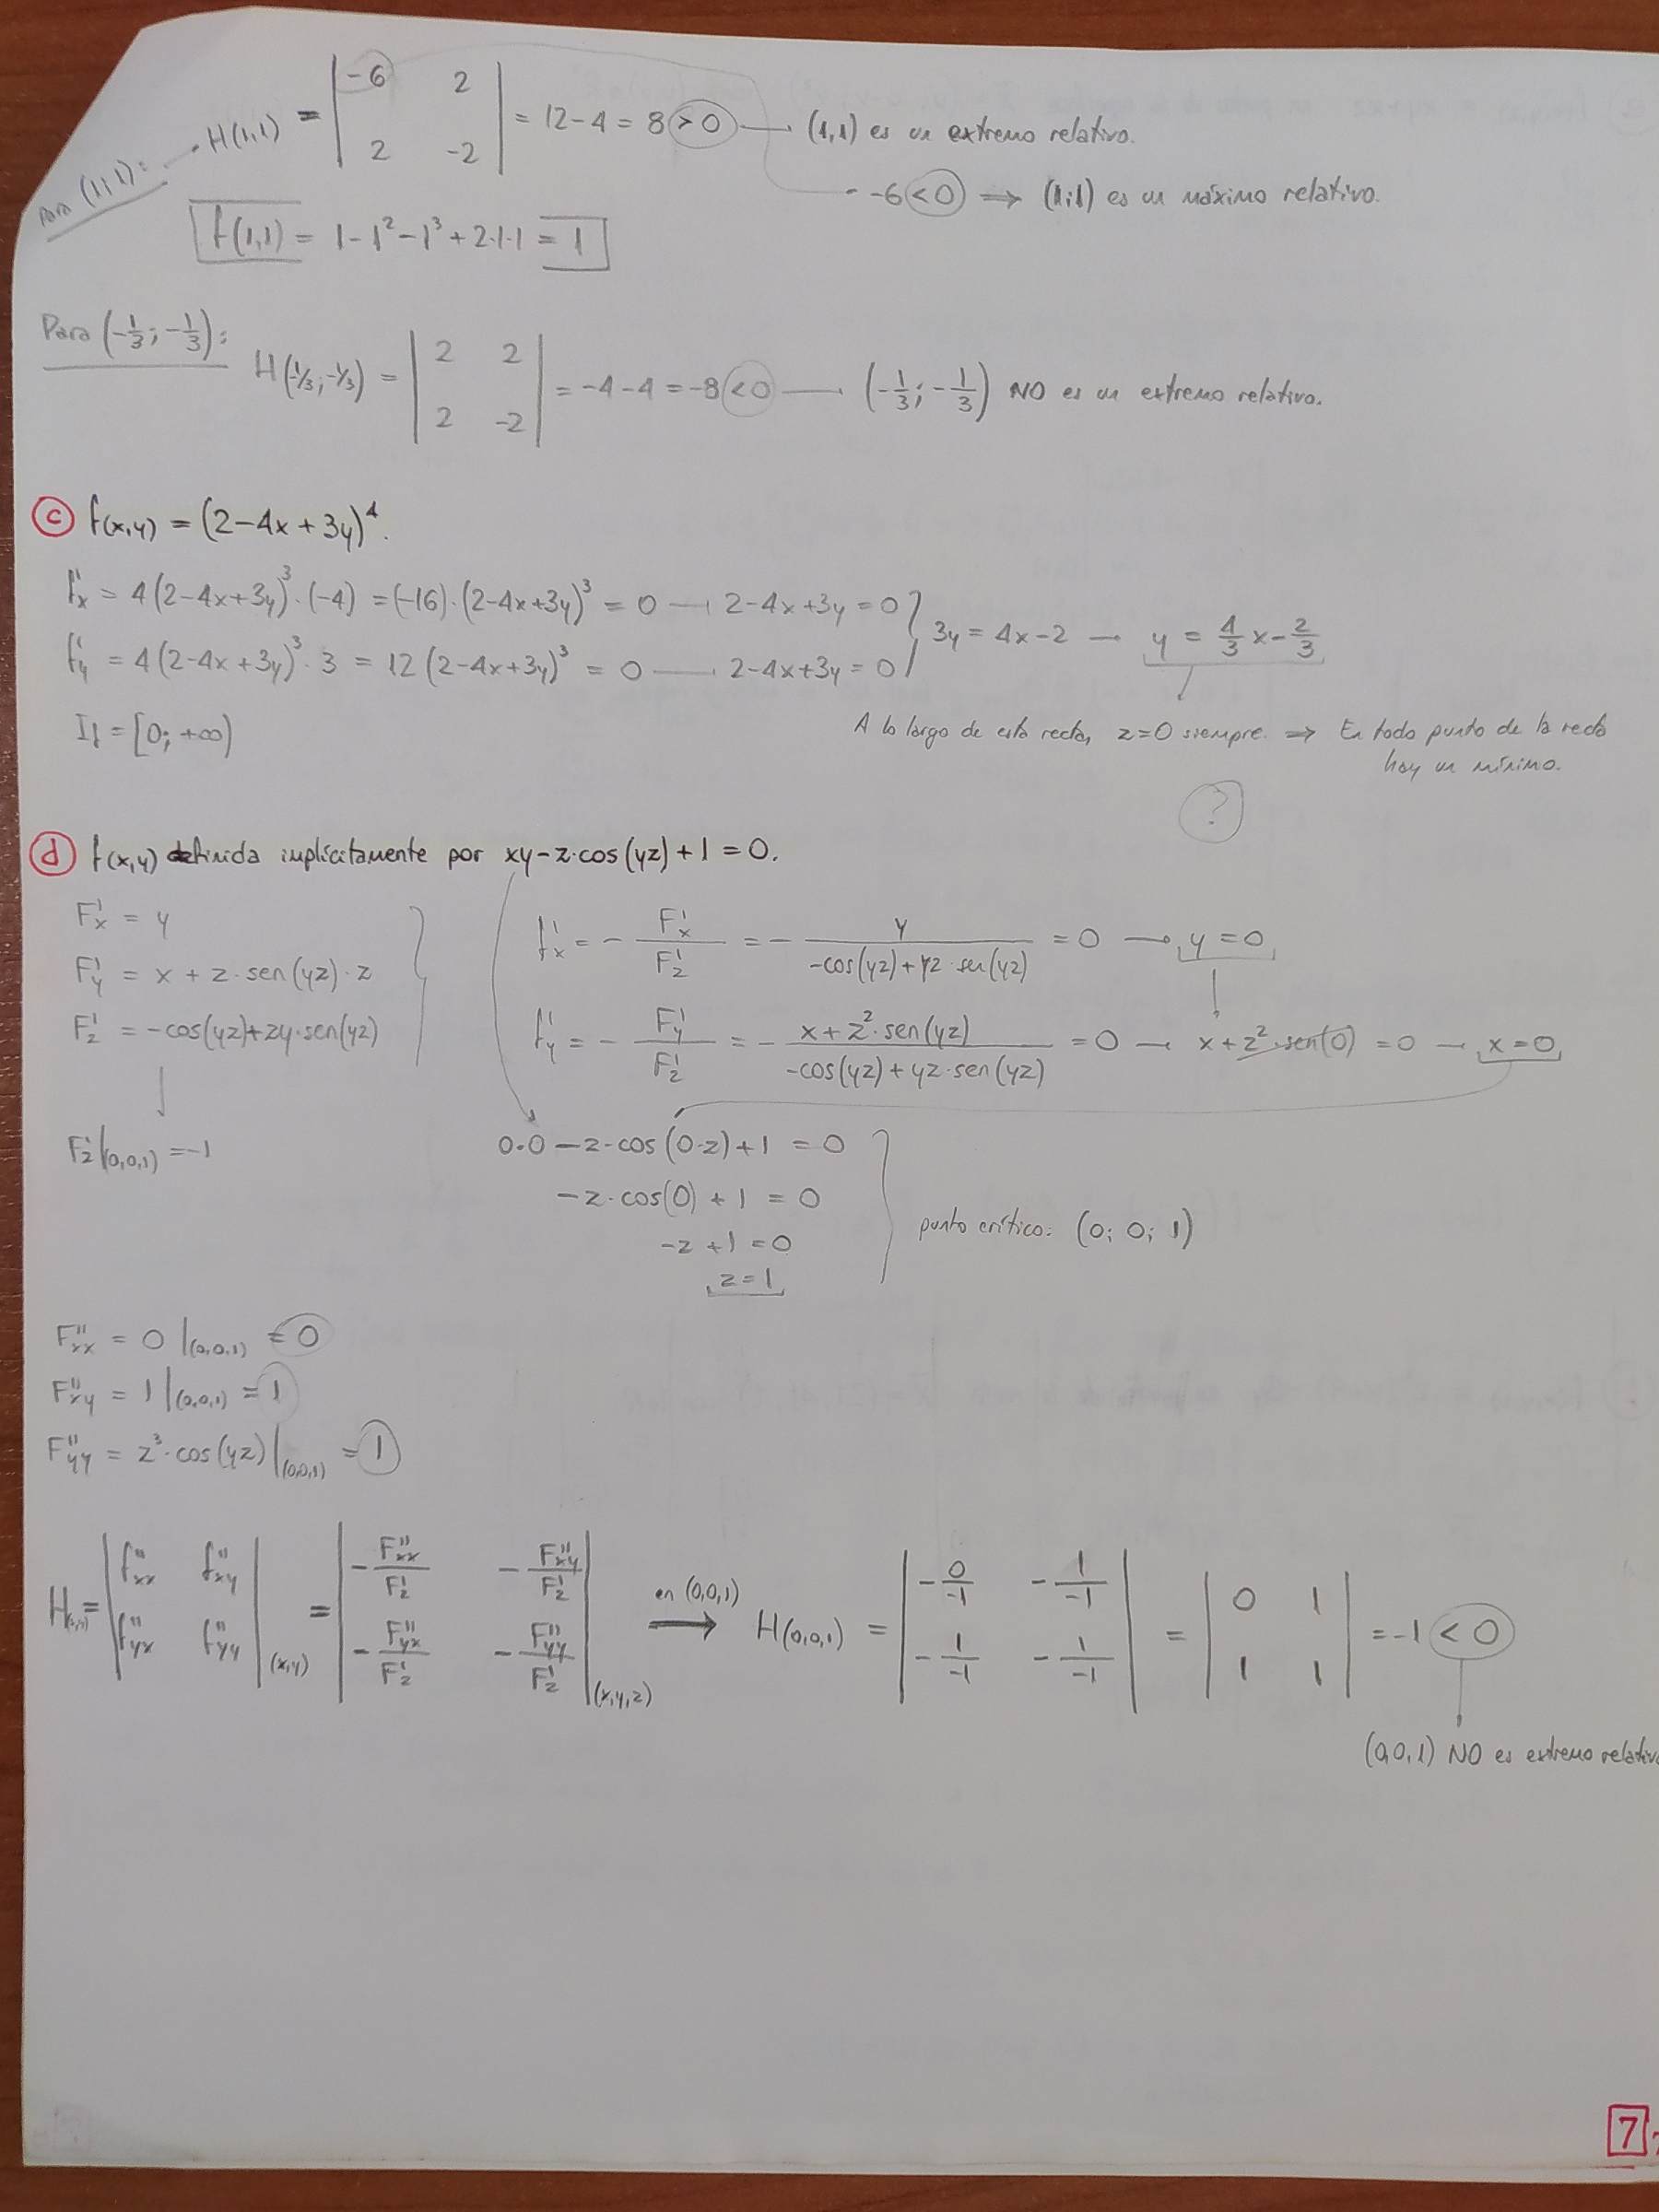 Para (1;1): → H(1,1) = | -6 2 | = 12-4 = 8 > 0 → (1,1) es un extremo relativo.
| 2 -2 |
-6 < 0 ⇒ (1;1) es un máximo relativo.
f(1,1) = 1-1²-1³+2·1·1 = 1
Para (-1/3; -1/3):
H(-1/3;-1/3) = | 2 2 | = -4-4 = -8 < 0 → (-1/3; -1/3) NO es un extremo relativo.
| 2 -2 |
c) f(x,y) = (2-4x+3y)⁴.
f'x = 4(2-4x+3y)³·(-4) = (-16)·(2-4x+3y)³ = 0 → 2-4x+3y=0
f'y = 4(2-4x+3y)³·3 = 12(2-4x+3y)³ = 0 → 2-4x+3y=0
3y = 4x-2 → y = 4/3 x - 2/3
If = [0; +∞)
A lo largo de esta recta, z=0 siempre. ⇒ En todo punto de la recta
hay un mínimo.
?
d) f(x,y) definida implícitamente por xy-z·cos(yz)+1=0.
F'x = y
F'y = x + z·sen(yz)·z
F'z = -cos(yz)+zy·sen(yz)
f'x = - F'x / F'z = - y / (-cos(yz)+yz·sen(yz)) = 0 → y=0
f'y = - F'y / F'z = - (x+z²·sen(yz)) / (-cos(yz)+yz·sen(yz)) = 0 → x+z²·sen(0) = 0 → x=0
F'z|(0,0,1) = -1
0·0-z·cos(0·z)+1 = 0
-z·cos(0)+1 = 0
-z+1=0
z=1
punto crítico: (0; 0; 1)
F''xx = 0 |(0,0,1) = 0
F''xy = 1 |(0,0,1) = 1
F''yy = z³·cos(yz) |(0,0,1) = 1
H(x,y) = | f''xx f''xy | = | -F''xx/F'z -F''xy/F'z | en (0,0,1) → H(0,0,1) = | -0/-1 -1/-1 | = | 0 1 | = -1 < 0
| f''yx f''yy |(x,y) | -F''yx/F'z -F''yy/F'z |(x,y,z) | -1/-1 -1/-1 | | 1 1 |
(0,0,1) NO es extremo relativo
7